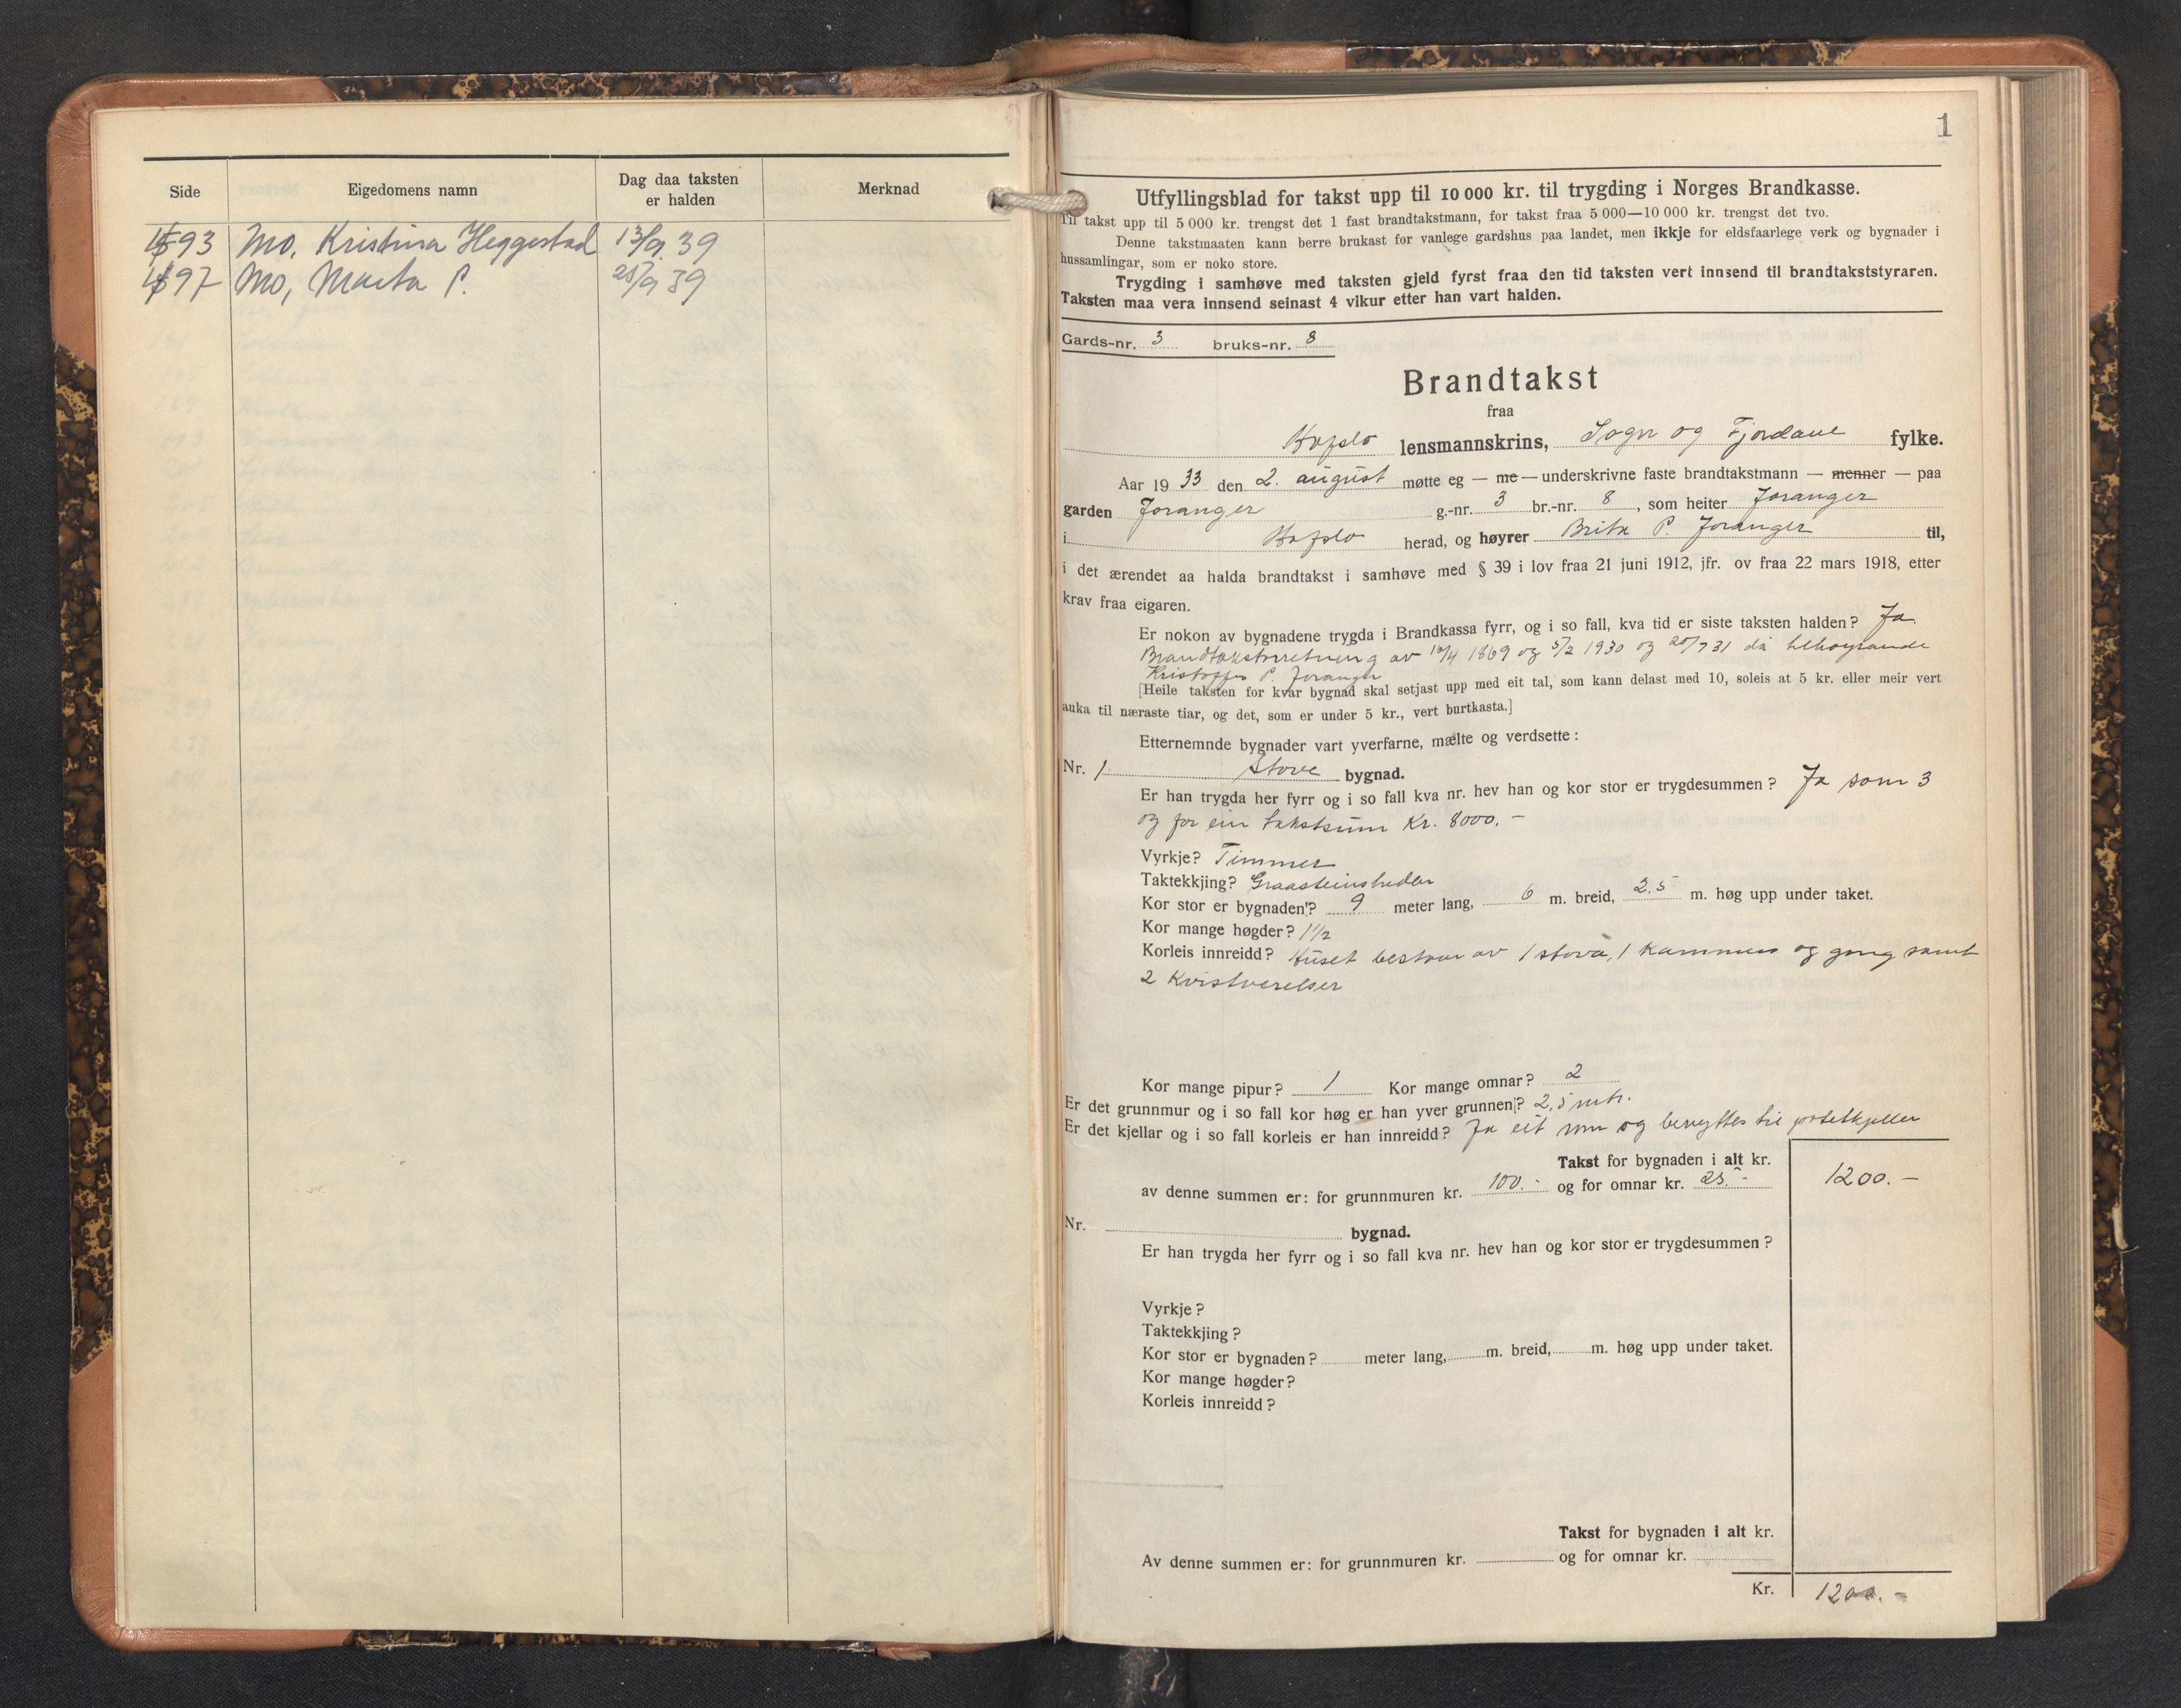 Side Eigedomens namn Dag daa taksten er halden Merknad
493 Mo, Kristina Heggestad 13/9 39
497 Mo, Marta P. 25/9 39
1
Utfyllingsblad for takst upp til 10 000 kr. til trygding i Norges Brandkasse.
Til takst upp til 5 000 kr. trengst det 1 fast brandtakstmann, for takst fraa 5 000—10 000 kr. trengst det tvo.
Denne takstmaaten kann berre brukast for vanlege gardshus paa landet, men ikkje for eldsfaarlege verk og bygnader i
hussamlingar, som er noko store.
Trygding i samhøve med taksten gjeld fyrst fraa den tid taksten vert innsend til brandtakststyraren.
Taksten maa vera innsend seinast 4 vikur etter han vart halden.
Gards-nr. 3 bruks-nr. 8
Brandtakst
fraa
Hafslo lensmannskrins, Sogn og Fjordane fylke.
Aar 1933 den 2. august møtte eg — me — underskrivne faste brandtakstmann — menner — paa
garden Joranger g.-nr. 3 br.-nr. 8, som heiter Joranger
i Hafslo herad, og høyrer Brita P. Joranger til,
i det ærendet aa halda brandtakst i samhøve med § 39 i lov fraa 21 juni 1912, jfr. ov fraa 22 mars 1918, etter
krav fraa eigaren.
Er nokon av bygnadene trygda i Brandkassa fyrr, og i so fall, kva tid er siste taksten halden? Ja.
Brandtakstforretning av 16/4 1869 og 5/2 1930 og 20/7 31 då tilhøyrande
Kristoffer P. Joranger
[Heile taksten for kvar bygnad skal setjast upp med eit tal, som kann delast med 10, soleis at 5 kr. eller meir vert
auka til næraste tiar, og det, som er under 5 kr., vert burtkasta.]
Etternemnde bygnader vart yverfarne, mælte og verdsette:
Nr. 1. Stove bygnad.
Er han trygda her fyrr og i so fall kva nr. hev han og kor stor er trygdesummen? Ja som 3
og for ein takstsum Kr. 8000.-
Vyrkje? Timmer
Taktekkjing? Graasteinsheller
Kor stor er bygnaden? 9 meter lang, 6 m. breid, 2.5 m. høg upp under taket.
Kor mange høgder? 1 1/2
Korleis innreidd? Huset bestaar av 1 stova, 1 kammers og gang samt
2 Kvistverelser
Kor mange pipur? 1 Kor mange omnar? 2
Er det grunnmur og i so fall kor høg er han yver grunnen? 2,5 mtr.
Er det kjellar og i so fall korleis er han innreidd? Ja eit rom og benyttes til potetkjeller
Takst for bygnaden i alt kr. 1200.-
av denne summen er: for grunnmuren kr. 100.- og for omnar kr. 25.-
Nr. bygnad.
Er han trygda her fyrr og i so fall kva nr. hev han og kor stor er trygdesummen?
Vyrkje?
Taktekkjing?
Kor stor er bygnaden? meter lang, m. breid, m. høg upp under taket.
Kor mange høgder?
Korleis innreidd?
Takst for bygnaden i alt kr.
Av denne summen er: for grunnmuren kr. og for omnar kr.
Kr. 1200.-